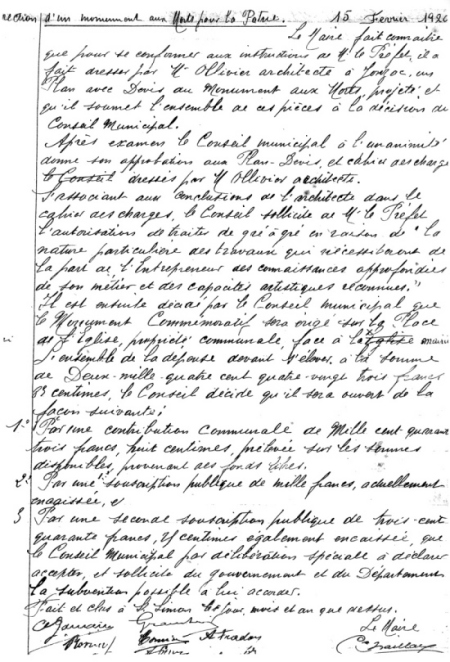 rection d'un monument aux Morts pour la Patrie. 15 Février 1926
Le Maire fait connaître
que pour se conformer aux instructions de Mr le Préfet, il a
fait dresser par Mr Ollivier architecte à Jonzac, un
Plan avec Devis du Monument aux Morts, projeté, et
qu'il soumet l'ensemble de ces pièces à la décision du
Conseil Municipal.
Après examen le Conseil municipal à l'unanimité
donne son approbation aux Plan-Devis, et cahier des charges
le Conseil dressés par Mr Ollivier architecte.
S'associant aux conclusions de l'architecte dans le
cahier des charges, le Conseil sollicite de Mr le Préfet
l'autorisation de traiter de gré à gré en raison de "la
nature particulière des travaux qui nécessiteront de
la part de l'Entrepreneur des connaissances approfondies
de son métier, et des capacités artistiques reconnues."
Il est ensuite décidé par le Conseil municipal que
le Monument Commémoratif sera érigé sur la Place
de l'Eglise, propriété communale, face à la
L'ensemble de la dépense devant s'élever à la somme
de Deux-mille quatre cent quatre-vingt trois francs
83 centimes, le Conseil décide qu'il sera ouvert de la
façon suivante;
1° Par une contribution communale de Mille cent quarante
trois francs, huit centimes, prélevée sur les sommes
disponibles, provenant des fonds libres.
2° Par une souscription publique de mille francs, actuellement
encaissée, et
3 Par une seconde souscription publique de trois-cent
quarante francs, centimes également encaissée, que
le Conseil Municipal par délibération spéciale a déclaré
accepter, et sollicite du gouvernement et du Département
la subvention possible à lui accorder.
Fait et clos à St Simon les jour, mois et an que dessus.
Le Maire